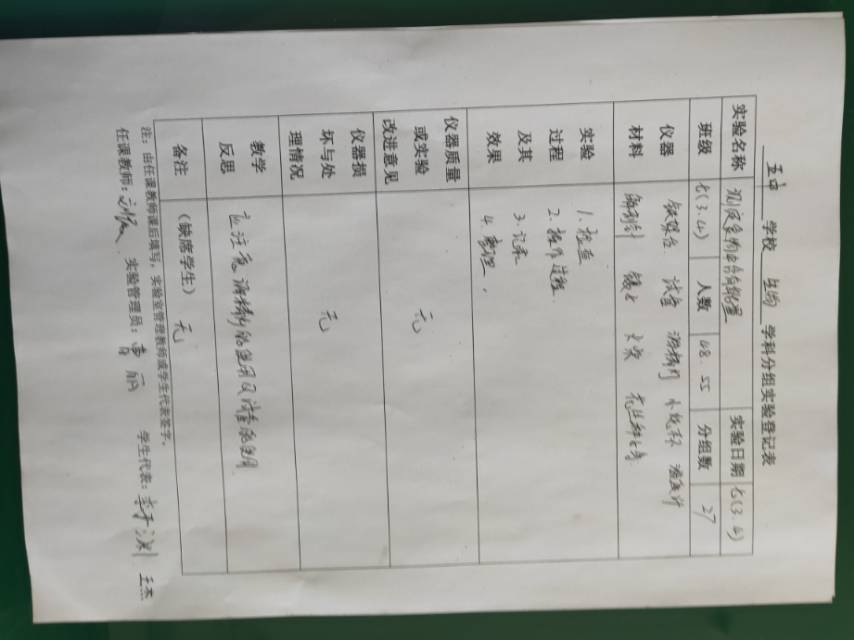 五中 学校 生物 学科分组实验登记表
实验名称 测定食物中含有能量 实验日期 七(3.4)
班级 七(3.4) 人数 48 55 分组数 27
仪器材料 铁架台 试管 小烧杯 温度计
解剖针 镊子 火柴 花生种子等
实验过程及其效果
1. 检查
2. 操作过程
3. 记录
4. 整理
仪器质量或实验改进意见 无
仪器损坏与处理情况 无
教学反思 应注意 的使用及 的使用
备注 (缺席学生) 无
注:由任课教师课后填写,实验室管理教师或学生代表签字。
任课教师: 实验管理员: 学生代表: 王杰